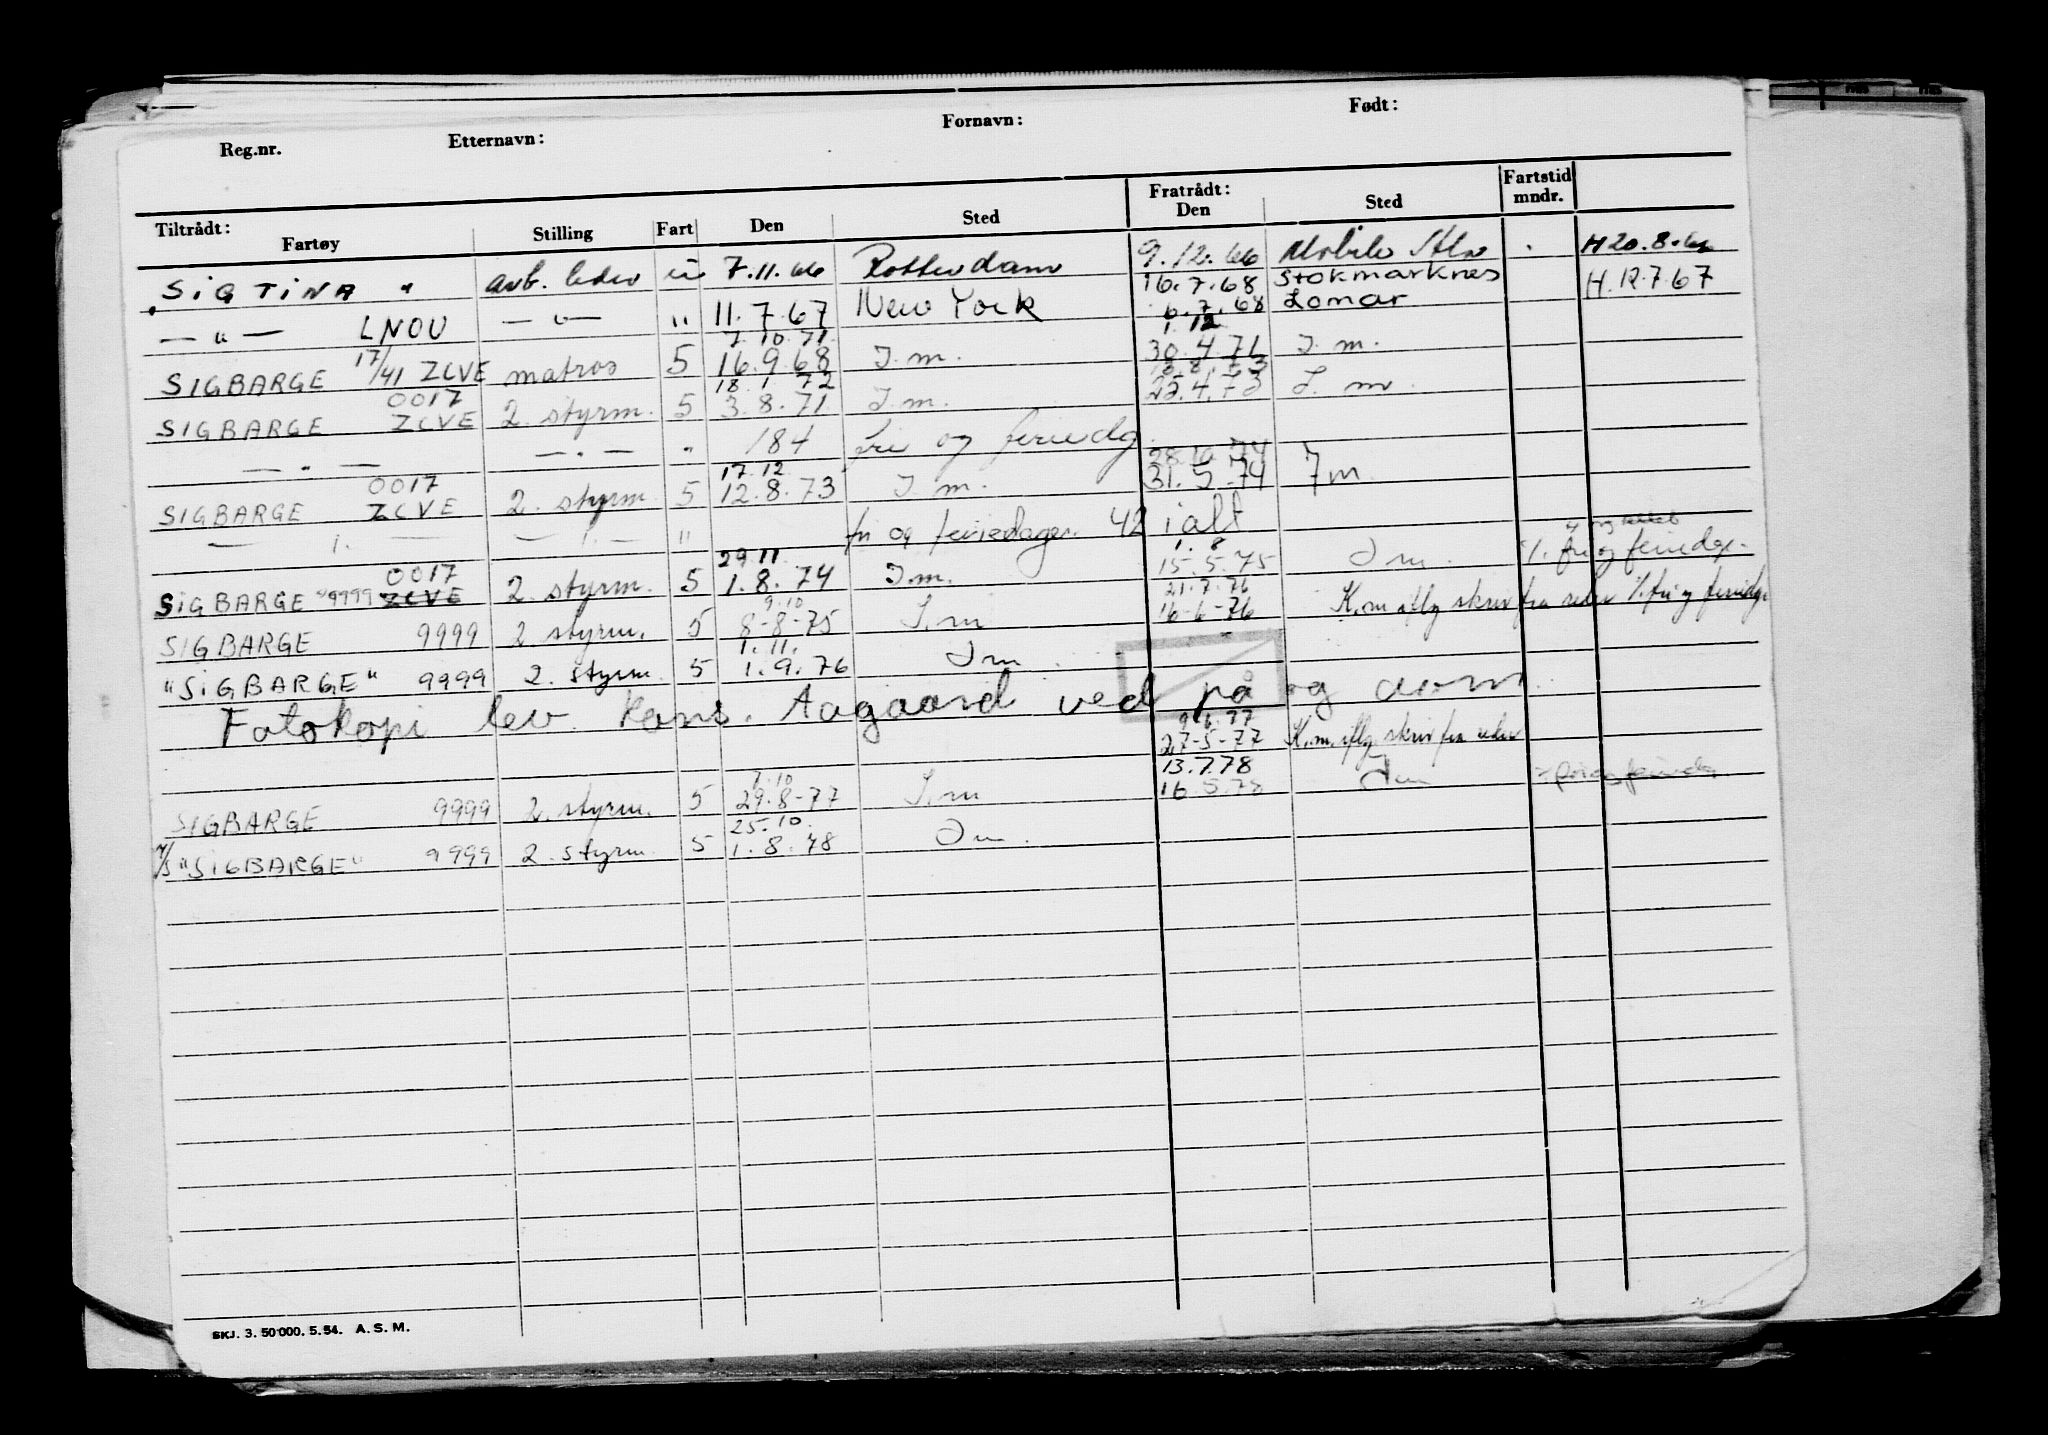 Reg.nr. Etternavn: Fornavn: Født:
Tiltrådt: Fratrådt: Fartstid
Fartøy Stilling Fart Den Sted Den Sted mndr.
"SIGTINA" 7.11.66 Rotterdam 9.12.66 Mobile H 20.8.
— " — LNOU — " — " 11.7.67 New York 16.7.68 Stokmarknes H. 12.7.67
6.7.68 Lomar
7.10.71 1.12
SIGBARGE 17/41 ZCVE matros 5 16.9.68 I.m. 30.4.71 I.m.
18.1.72
SIGBARGE 0017 ZCVE 2. styrm. 5 3.8.71 I.m. 25.4.73 I.m.
— " — — " — " 184 fri og feriedg.
17.12
SIGBARGE 0017 ZCVE 2. styrm. 5 12.8.73 I.m. 31.5.74 I m
— " — — " — " fri og feriedager. 42 ialt
29.11 1.8
SIGBARGE "9999 0017 ZCVE 2. styrm. 5 1.8.74 I.m. 15.5.75 I m. %. fri og feriedge.
9.10 21.7.76
SIGBARGE 9999 2. styrm. 5 8-8-75 I.m 16-6-76 K.m iflg skriv fra reder %. fri og feriedg.
1.11.
"SIGBARGE" 9999 2. styrm. 5 1.9.76 I m.
Fotokopi lev. Hans. Aagaard ved på og avm.
9.6.77
27-5-77 K.m. iflg. skriv fra reder
7.10 13.7.78
SIGBARGE 9999 2. styrm. 5 29.8-77 I.m 16.5.78 I m
25.10.
"SIGBARGE" 9999 2. styrm. 5 1.8.78 I m.
SKJ. 3. 50000. 5. 54. A. S. M.